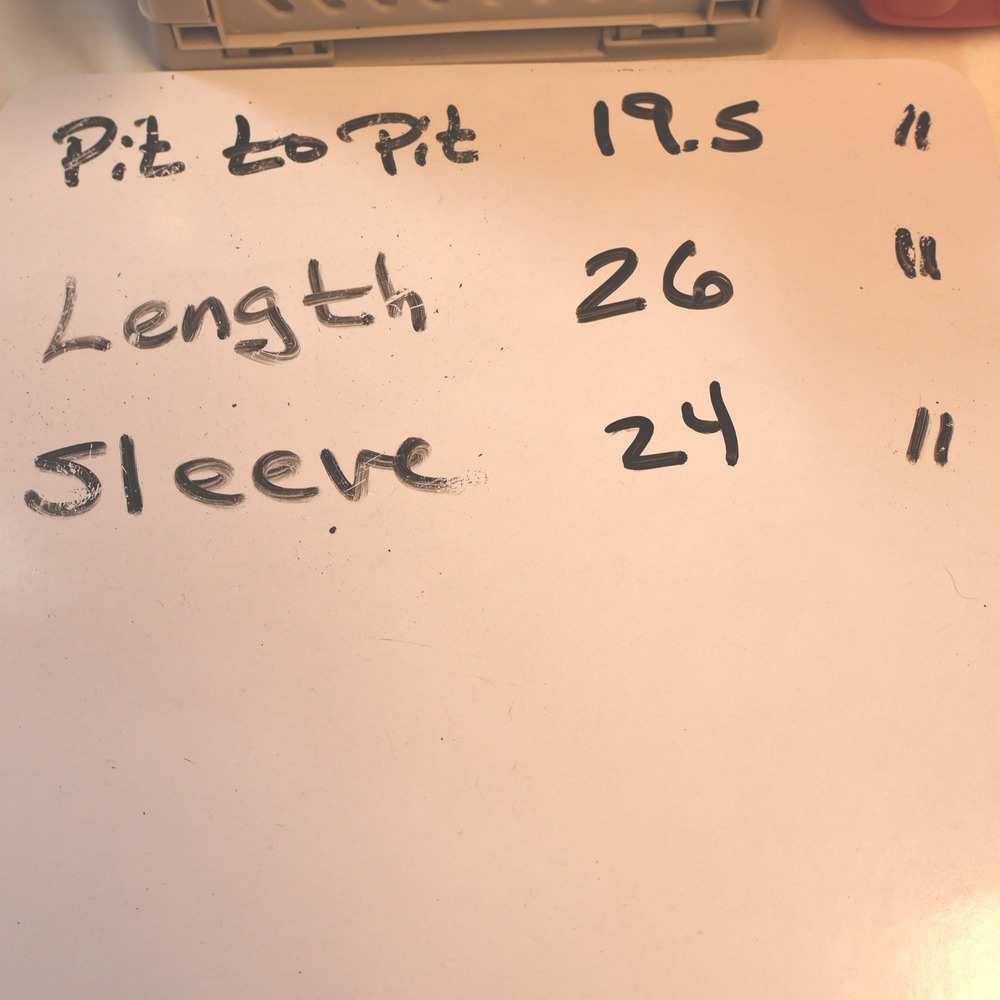 Pit to Pit 19.5 "
Length 26 "
Sleeve 24 "